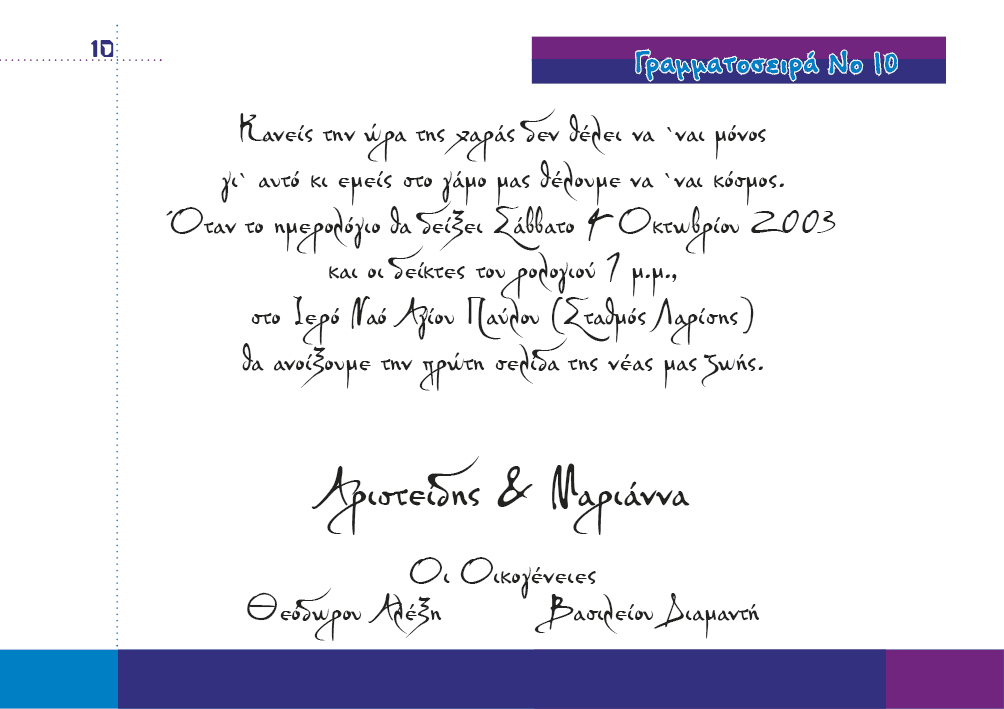 10
Γραμματοσειρά Νο 10
Κανείς την ώρα της χαράς δεν θέλει να `ναι μόνος
γι` αυτό κι εμείς στο γάμο μας θέλουμε να `ναι κόσμος.
Όταν το ημερολόγιο θα δείξει Σάββατο 4 Οκτωβρίου 2003
και οι δείκτες του ρολογιού 7 μ.μ.,
στο Ιερό Ναό Αγίου Παύλου (Σταθμός Λαρίσης)
θα ανοίξουμε την πρώτη σελίδα της νέας μας ζωής.
Αριστείδης & Μαριάννα
Οι Οικογένειες
Θεόδωρου Αλέξη Βασιλείου Διαμαντή